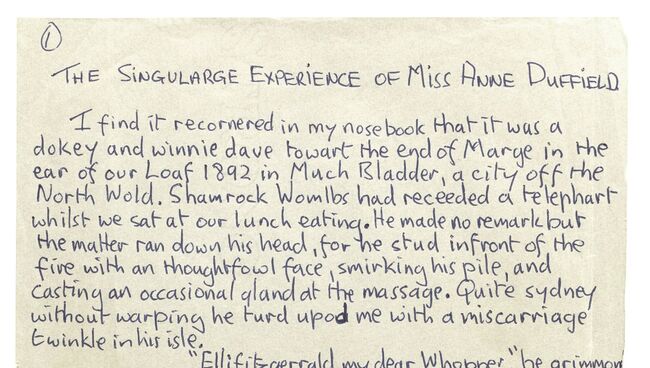 1
THE SINGULARGE EXPERIENCE OF MISS ANNE DUFFIELD
I find it recornered in my nosebook that it was a
dokey and winnie dave towart the end of Marge in the
ear of our Loaf 1892 in Much Bladder, a city off the
North Wold. Shamrock Womlbs had receeded a telephart
whilst we sat at our lunch eating. He made no remark but
the matter ran down his head, for he stud infront of the
fire with an thoughtfowl face, smirking his pile, and
casting an occasional gland at the massage. Quite sydney
without warping he turd upod me with a miscarriage
twinkle in his isle.
"Ellifitzgerrald my dear Whopper" he grimmon